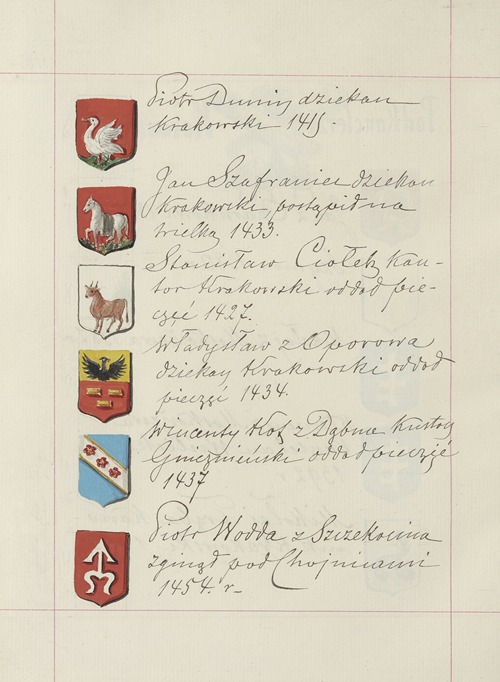 Piotr Dunin dziekan
Krakowski 1415.
Jan Szafraniec dziekan
Krakowski, postąpił na
wielką 1433.
Stanisław Ciołek, kan-
tor Krakowski oddał pie-
częć 1427.
Władysław z Oporowa
dziekan Krakowski oddał
pieczęć 1434.
Wincenty Kot z Dąbna Kustosz
Gnieźnieński oddał pieczęć
1437
Piotr Wodda z Szczekocina
zginął pod Chojnicami
1454. r-